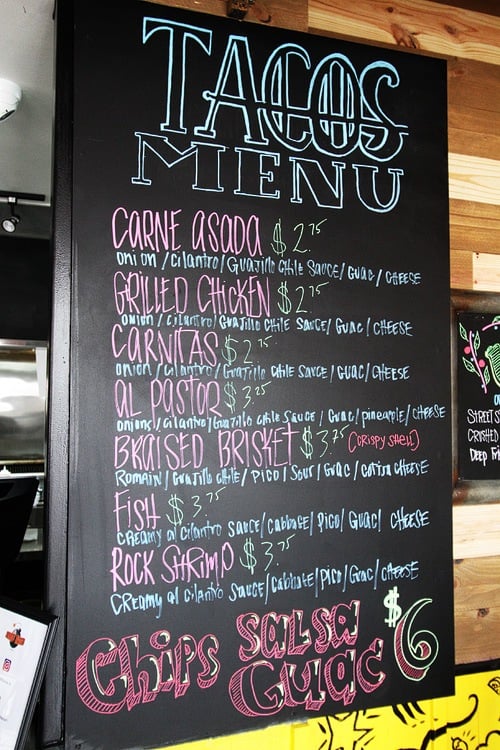 TACOS
MENU
CARNE ASADA $2.75
onion/cilantro/Guajillo Chile Sauce/Guac/CHEESE
GRILLED CHICKEN $2.75
onion/cilantro/Guajillo Chile Sauce/Guac/CHEESE
CARNITAS $2.75
onion/cilantro/Guajillo Chile Sauce/GUAC/CHEESE
AL PASTOR $3.25
onions/cilantro/Guajillo Chile Sauce/Guac/pineapple/CHEESE
BRAISED BRISKET $3.75 (CRISPY SHELL)
Romain/Guajillo Chile/Pico/Sour/Guac/cotija CHEESE
FISH $3.75
CREAMY al Cilantro SAUCE/Cabbage/Pico/Guac/CHEESE
ROCK SHRIMP $3.75
CREAMY al Cilantro SAUCE/Cabbage/Pico/Guac/CHEESE
Chips SALSA GUAC $6
STREET
CRUSHED
Deep